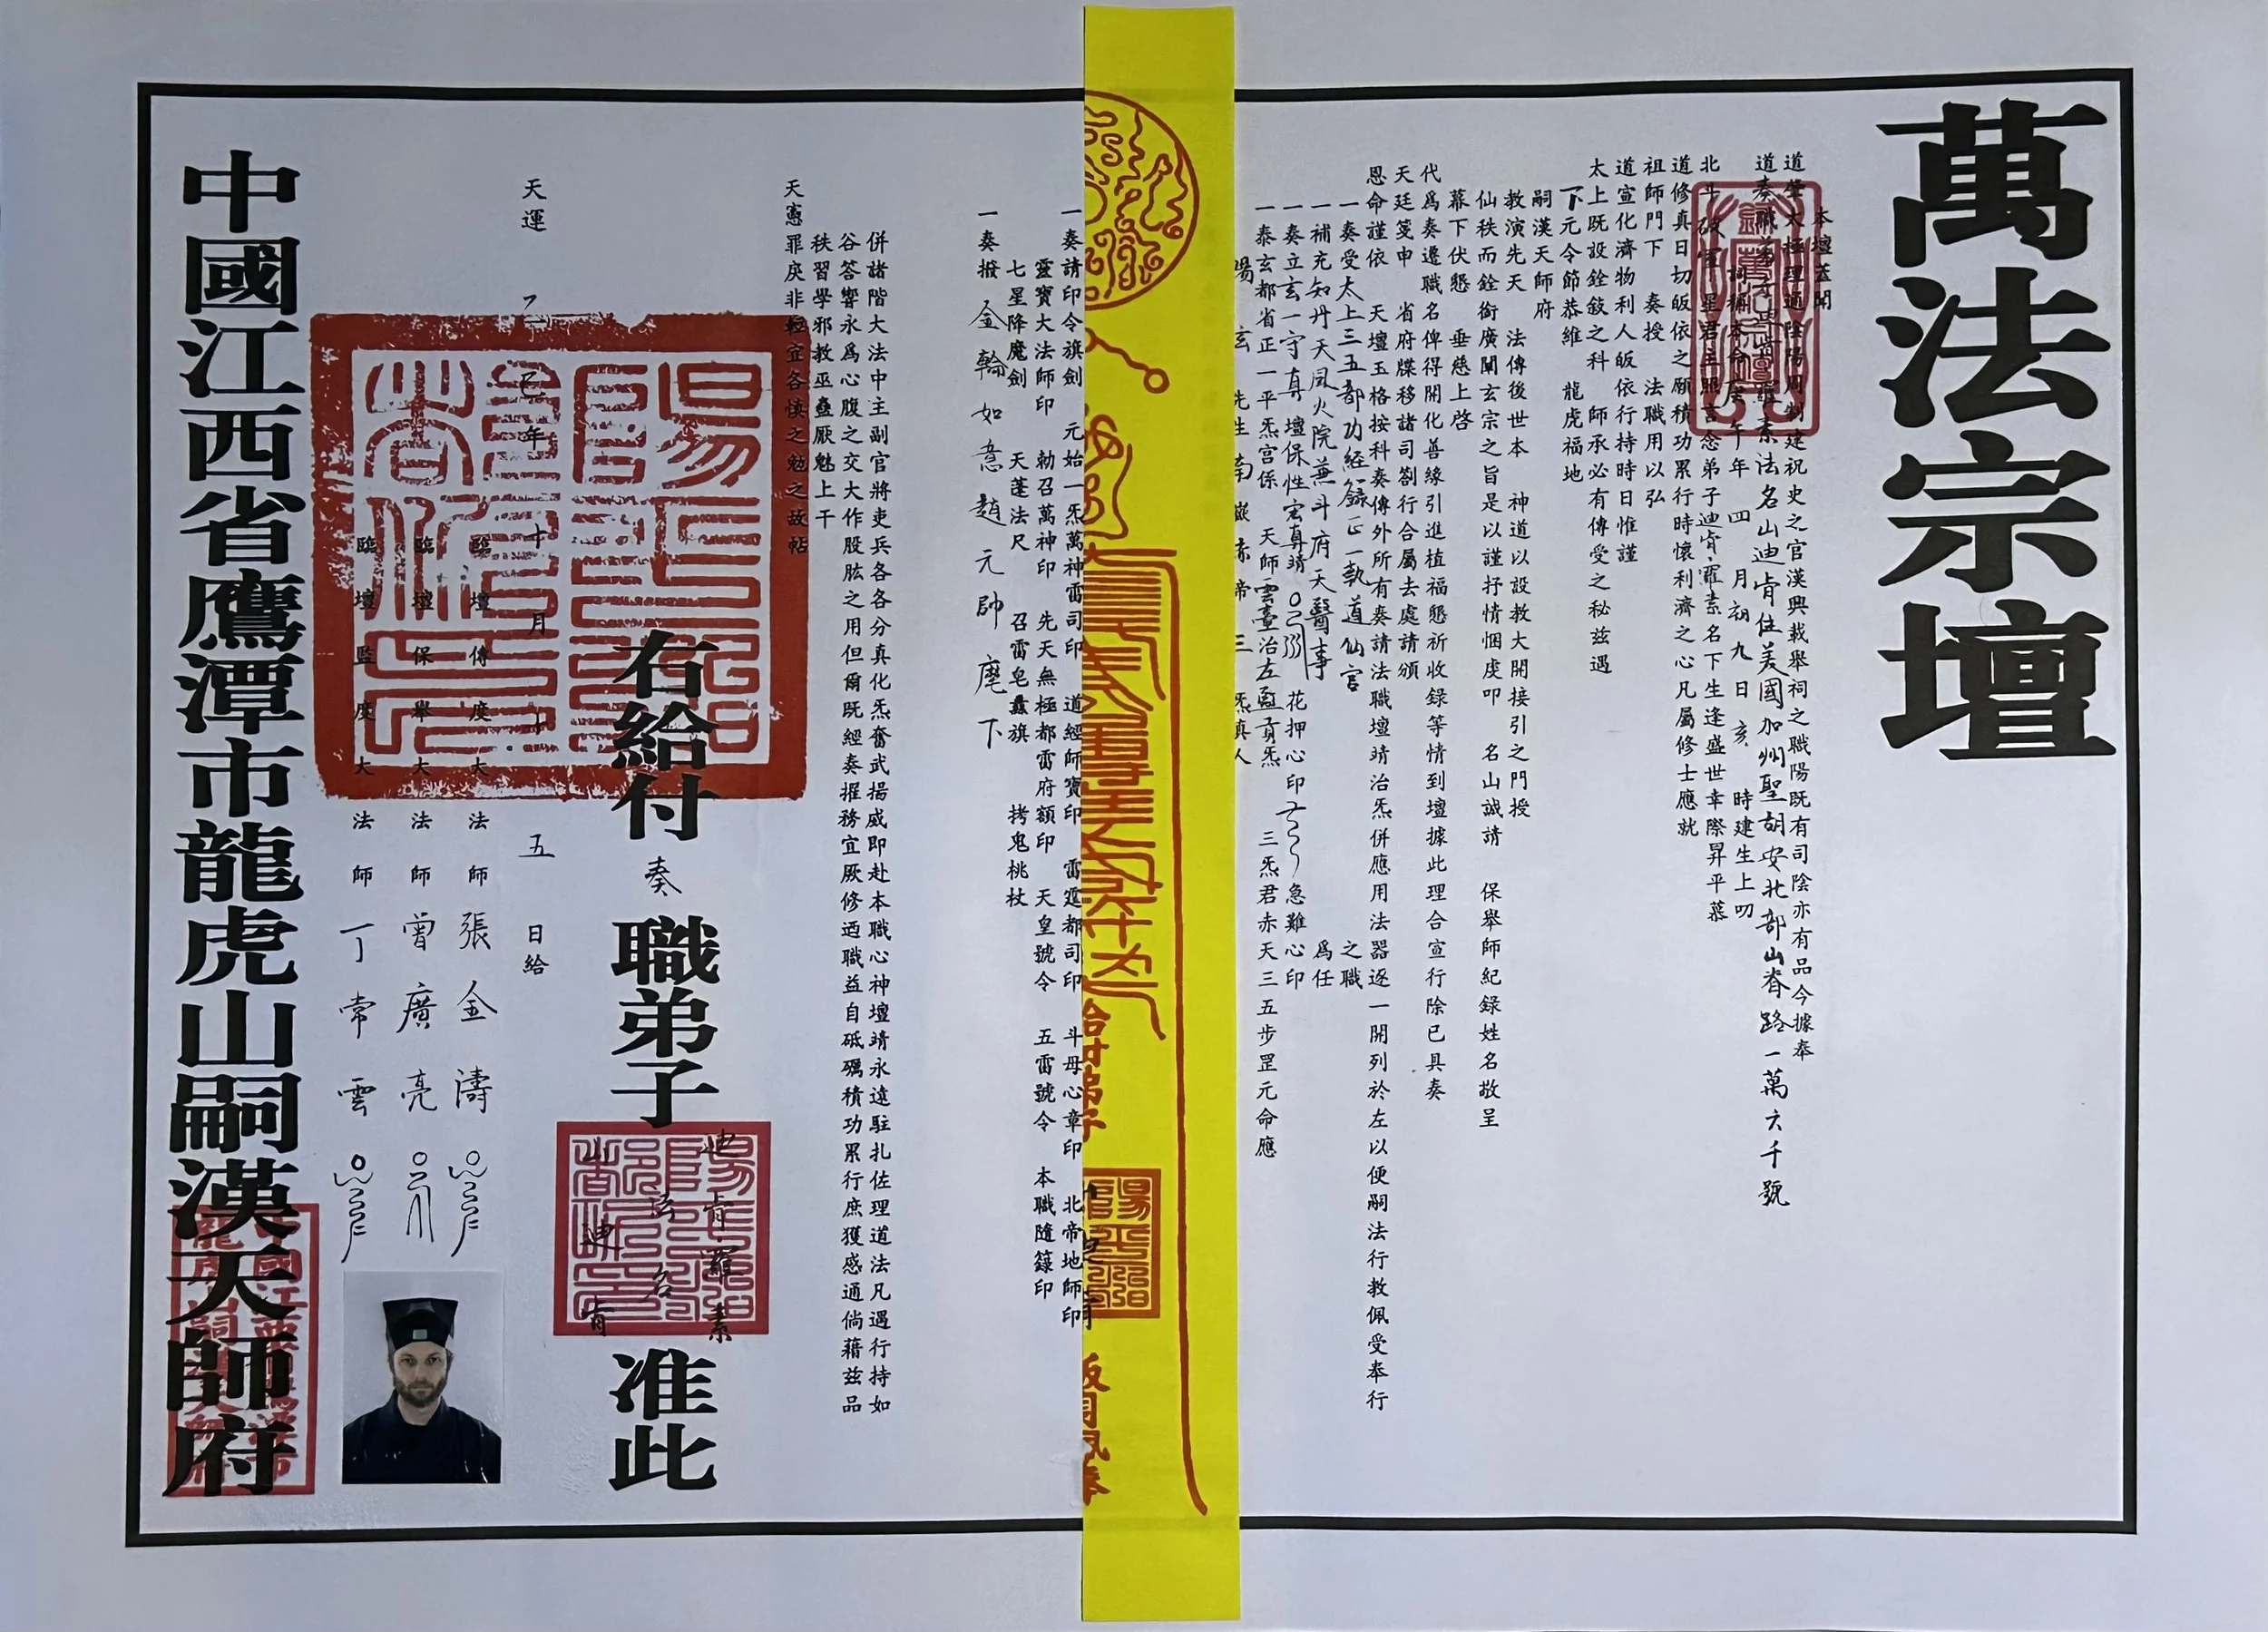 萬法宗壇
本壇蓋聞
道肇太極理通陰陽周制建祝史之官漢興載舉祠之職陽既有司陰亦有品今據奉
道奏職弟子迪肯羅素法名山迪肯住美國加州聖胡安北部山脊路一萬六千號
詞稱本命庚午年四月初九日亥時建生上叨
北斗破軍星君主照言念弟子迪肯羅素名下生逢盛世幸際昇平慕
道修真日切皈依之願積功累行時懷利濟之心凡屬修士應就
祖師門下奏授法職用以弘
道宣化濟物利人皈依行持時日惟謹
太上既設銓敘之科師承必有傳受之秘茲遇
下元令節恭維龍虎福地
嗣漢天師府
教演先天法傳後世本神道以設教大開接引之門授
仙秩而銓衛廣闡玄宗之旨是以謹抒情悃虔叩名山誠請保舉師紀錄姓名敬呈
幕下伏懇垂慈上啓
代爲奏遷職名俾得開化善緣引進植福懇祈收錄等情到壇據此理合宣行除已具奏
天廷箋申省府牒移諸司劄行合屬去處請頒
恩命謹依天壇玉格按科奏傳外所有奏請法職壇靖治炁併應用法器逐一開列於左以便嗣法行教佩受奉行
一奏受太上三五都功經籙正一執道仙官之職
一補充知丹天風火院兼斗府天醫事爲任
一奏立玄一守真壇保性宏真靖花押心印急難心印
一泰玄都省正一平炁宮係天師雲臺治左贡炁三炁君赤天三五步罡元命應
陽玄先生南嶽赤帝三炁真人
一奏請印令旗劍元始一炁萬神雷司印道經師寶印雷霆都司印斗母心章印北帝地師印
靈寶大法師印勑召萬神印先天無極都雷府額印天皇號令五雷號令本職隨籙印
七星降魔劍天蓬法尺召雷皂纛旗拷鬼桃杖
一奏撥金輪如意趙元帥麾下
併諸階大法中主副官將吏兵各各分真化炁奮武揚威即赴本職心神壇靖永遠駐扎佐理道法凡遇行持如
谷答響永爲心腹之交大作股肱之用但爾既經奏擢務宜厥修迺職益自砥礪積功累行庶獲感通倘藉茲品
秩習學邪教巫蠱厭魅上干
天憲罪戾非輕宜各慎之勉之故帖
右給付奏職弟子迪肯羅素法名山迪肯准此
天運乙巳年十月十五日給
臨壇傳度大法師張金濤
臨壇保舉大法師曾廣亮
臨壇監度大法師丁常雲
中國江西省鷹潭市龍虎山嗣漢天師府